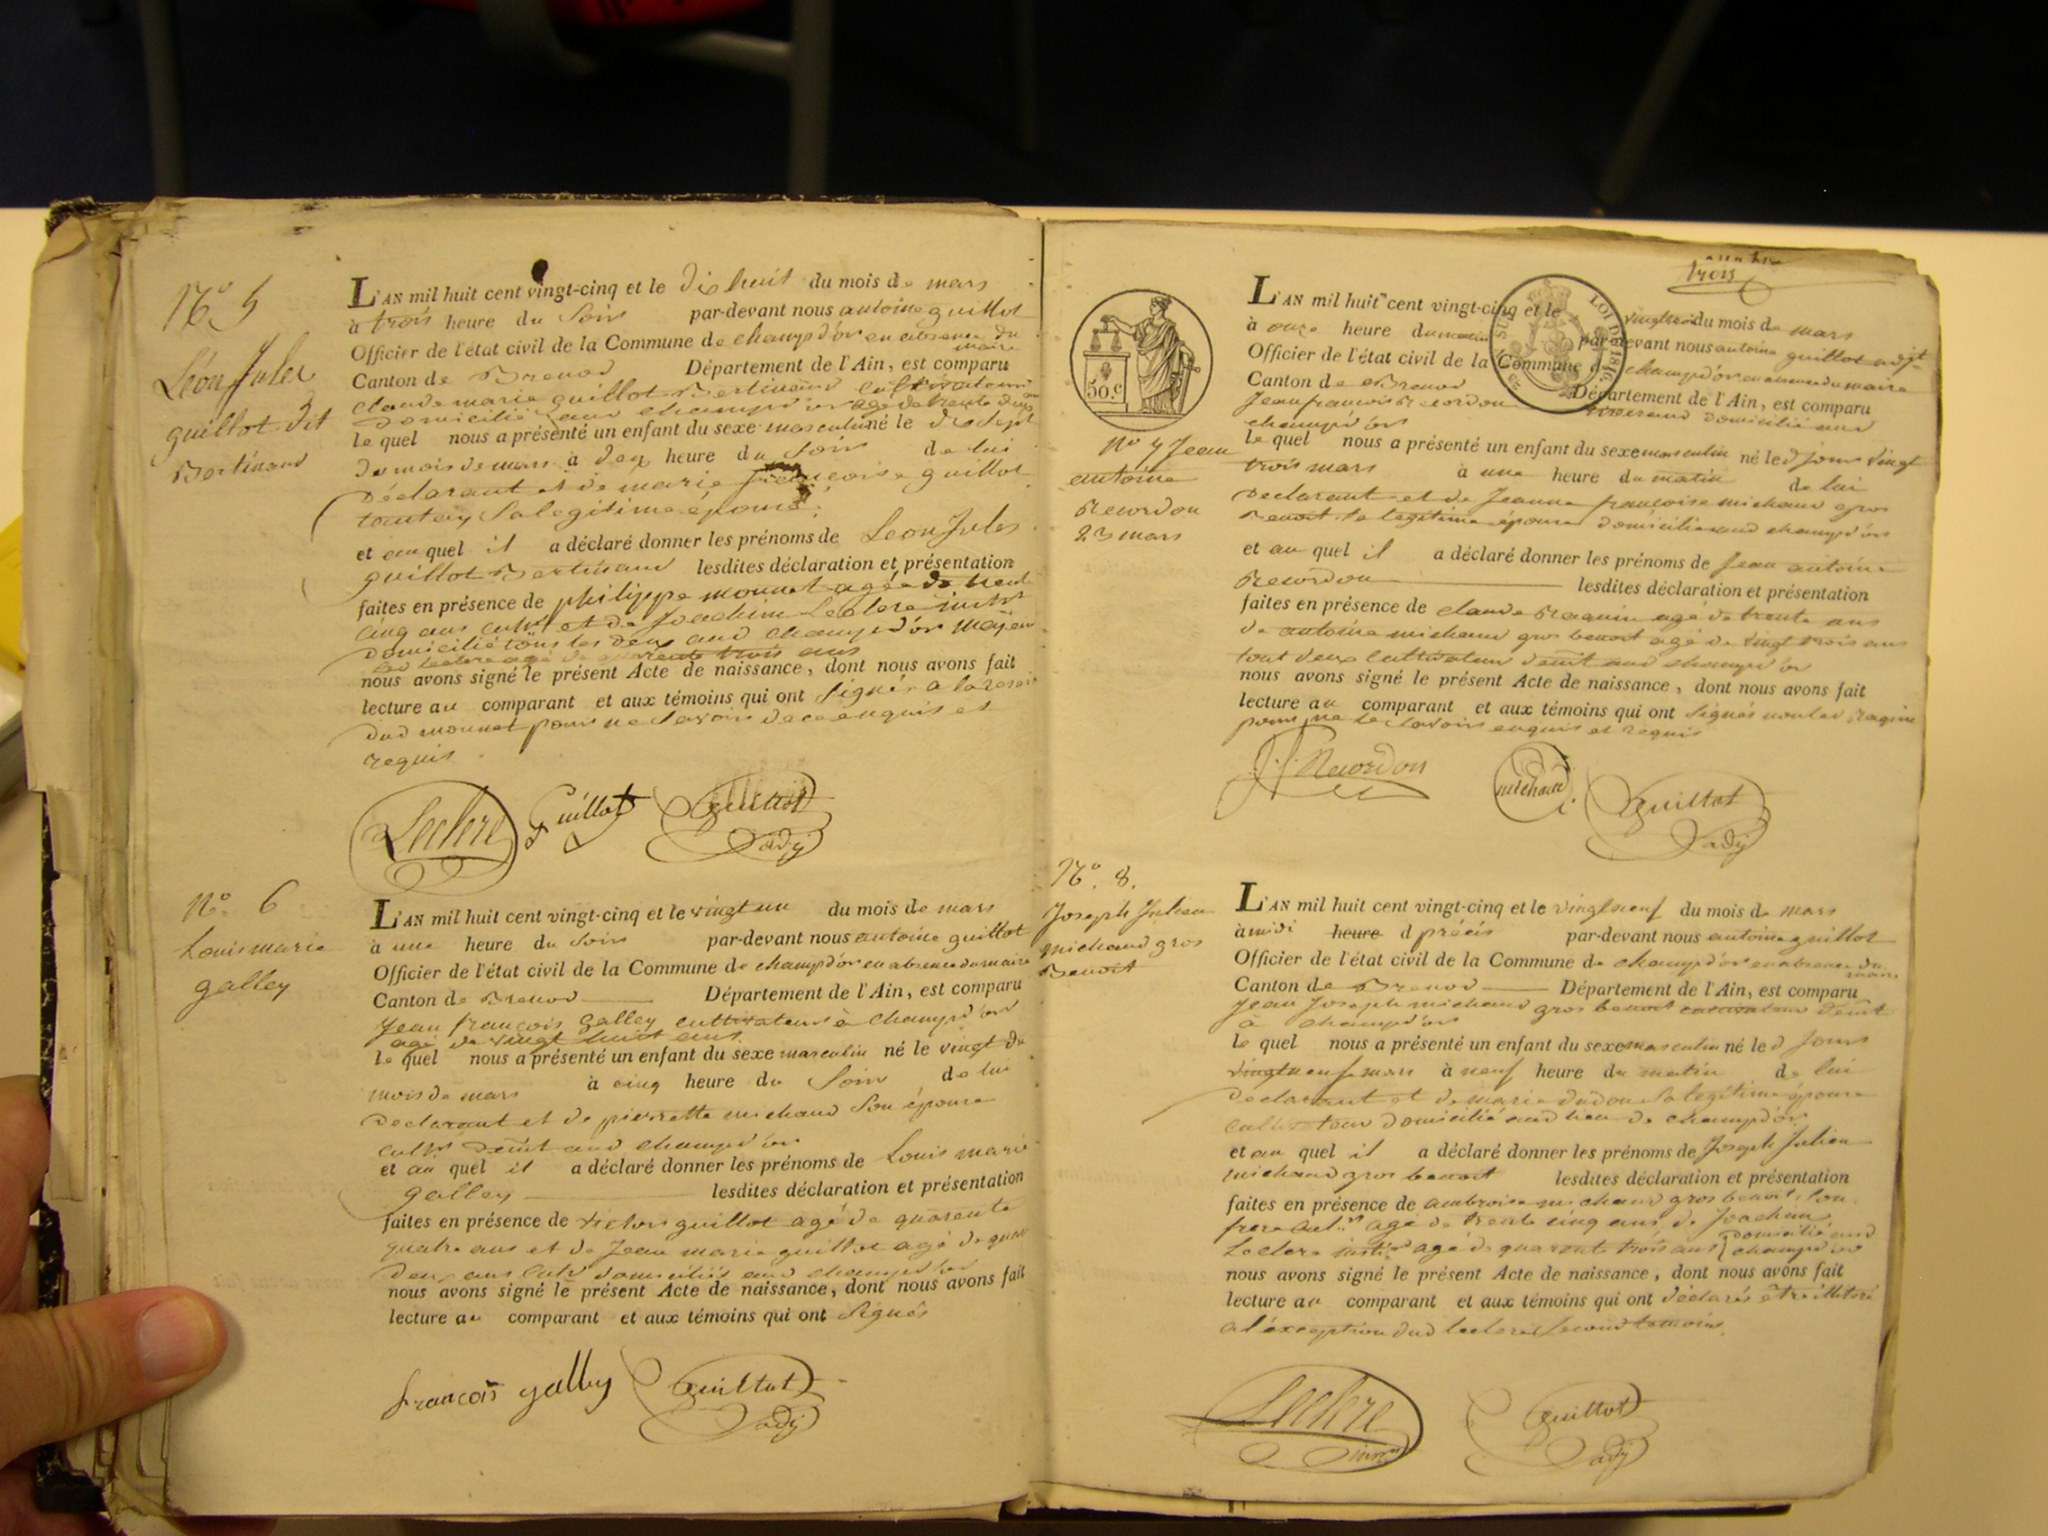 N.o 5
Léon Jules
guillot dit
Bertinand
L'AN mil huit cent vingt-cinq et le dix huit du mois de mars
à trois heure du soir par-devant nous antoine guillot
Officier de l'état civil de la Commune de champdor en absence du maire
Canton de Brenod Département de l'Ain, est comparu
claude marie guillot Bertinand cultivateur
domicilié aud champdor agé de trente
le quel nous a présenté un enfant du sexe masculin né le dix sept
du mois de mars à dex heure du soir de lui
déclarant et de marie françoise guillot
sa legitime épouse
et au quel il a déclaré donner les prénoms de Leon Jules
guillot Bertinand lesdites déclaration et présentation
faites en présence de philippe monnet agée de trent
cinq ans cultr et de Joachim Leclere instr
domicilié tous les deux aud champdor
led leclere agé de quarente trois ans
nous avons signé le présent Acte de naissance, dont nous avons fait
lecture au comparant et aux témoins qui ont signér a la
dud monnet pour ne savoir de ce enquis et
requis
Leclere Guillot Guillot
adj
N.o 6
Louis marie
galley
L'AN mil huit cent vingt-cinq et le vingt un du mois de mars
à une heure du soir par-devant nous antoine guillot
Officier de l'état civil de la Commune de champdor en absence du maire
Canton de Brenod Département de l'Ain, est comparu
Jean françois galley cultivateur à champdor
agé de vingt huit ans
le quel nous a présenté un enfant du sexe masculin né le vingt du
mois de mars à cinq heure du soir de lui
declarant et de pierrette michaud son épouse
cultr aud champdor
et au quel il a déclaré donner les prénoms de Louis marie
galley lesdites déclaration et présentation
faites en présence de victor guillot agé de quarente
quatre ans et de Jean marie guillot agé de
deux ans cultr domiciliés aud champdor
nous avons signé le présent Acte de naissance, dont nous avons fait
lecture au comparant et aux témoins qui ont signés
françois galley Guillot
adj
trois
50.c
LOI DE 1816
N.o 7 Jean
antoine
Recordon
23 mars
L'AN mil huit cent vingt-cinq et le vingtrois du mois de mars
à onze heure du matin par-devant nous antoine guillot adjt
Officier de l'état civil de la Commune de champdor en absence du maire
Canton de Brenod Département de l'Ain, est comparu
Jean francois Recordon domicilié aud
champdor
le quel nous a présenté un enfant du sexe masculin né led jour vingt
trois mars à une heure du matin de lui
declarant et de Jeanne françoise michaud gros
Benoit sa legitime épouse domicilié aud champdor
et au quel il a déclaré donner les prénoms de Jean antoine
Recordon lesdites déclaration et présentation
faites en présence de claude Raquin agé de trente ans
de antoine michaud gros benoit agé de vingt trois ans
tout deux cultivateur aud champdor
nous avons signé le présent Acte de naissance, dont nous avons fait
lecture au comparant et aux témoins qui ont signés
pour ne le savoir enquis et requis
J.f. Recordon michaud Guillot
adj
N.o 8.
Joseph Julien
michaud gros
Benoit
L'AN mil huit cent vingt-cinq et le vingtneuf du mois de mars
à midi heure d précis par-devant nous antoine guillot
Officier de l'état civil de la Commune de champdor en absence du maire
Canton de Brenod Département de l'Ain, est comparu
Jean Joseph michaud gros benoit
à champdor
le quel nous a présenté un enfant du sexe masculin né led Jours
vingtneuf mars à neuf heure du matin de lui
declarant et de marie dudon sa legitime épouse
domicilié aud lieu de champdor
et au quel il a déclaré donner les prénoms de Joseph Julien
michaud gros benoit lesdites déclaration et présentation
faites en présence de ambroise michaud gros benoit son
frere agé de trente cinq ans, de Joachim
Leclere agé de quarente trois ans domicilié aud champdor
nous avons signé le présent Acte de naissance, dont nous avons fait
lecture au comparant et aux témoins qui ont déclarés être illiteré
a l'exception dud leclere second temoins.
Leclere Guillot
adj